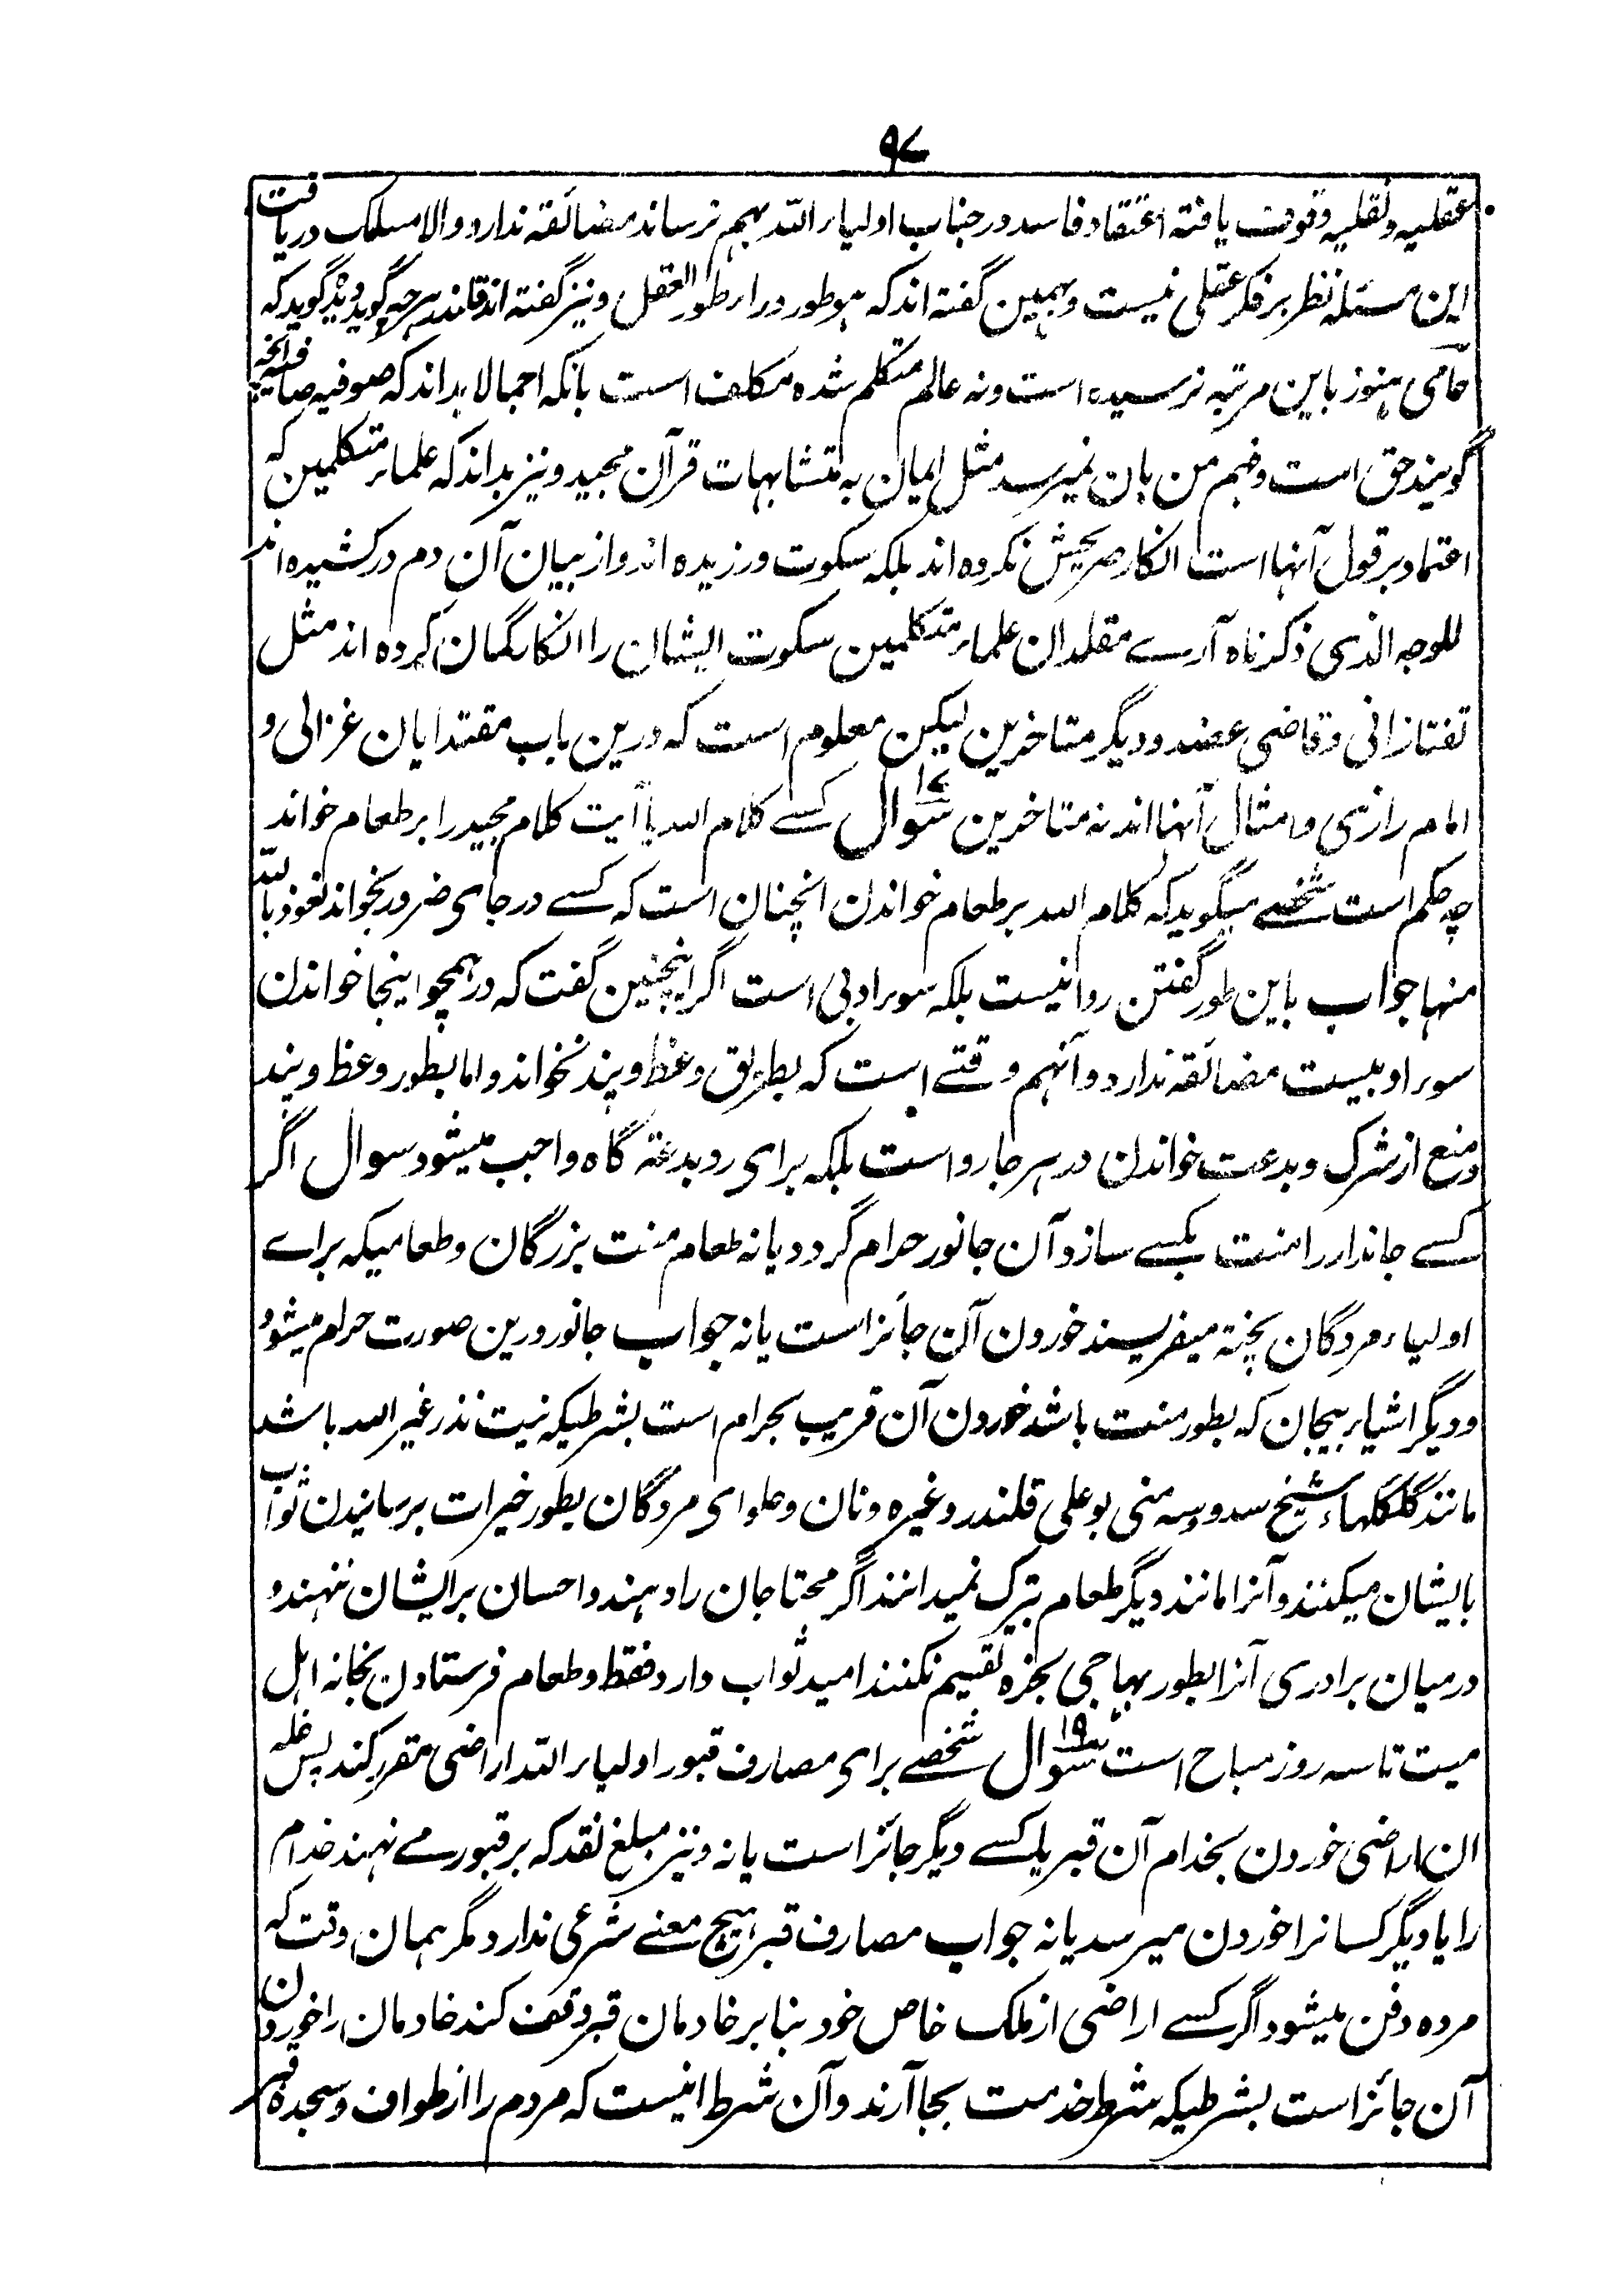 ۹۷
عقلیه و نقلیه وقوف یافته اعتقاد فاسد در جناب اولیاء الله بهم نرساند مضائقه ندارد والا مسلک دریافت
این مسئله نظر بر فکر عقلی نیست و بهمین گفته اند که هو طور وراء طور العقل و نیز گفته اند قلندر هرچه گوید دیده گوید که
عامی هنوز باین مرتبه نرسیده است و نه عالم متکلم شده مکلف است بانکه اجمالا بداند که صوفیه صافیه آنچه
گویند حق است و فهم من بان نمیرسد مثل ایمان به متشابهات قرآن مجید و نیز بداند که علماء متکلمین که
اعتماد بر قول آنها است انکار صریحش نکرده اند بلکه سکوت ورزیده اند و از بیان آن دم در کشیده اند
للوجه الذی ذکرناه آرے مقلدان علماء متکلمین سکوت ایشان را انکار گمان کرده اند مثل
تفتازانی و قاضی عضد و دیگر متاخرین لیکن معلوم است که درین باب مقتدایان غزالی و
امام رازی و امثال آنها اند نه متاخرین سوال ۱۷ کسے کلام الله یا آیت کلام مجید را بر طعام خواند
چه حکم است شخصے میگوید که کلام الله بر طعام خواندن انچنان است که کسے در جای ضرور بخواند نعوذ بالله
منها جواب باین طور گفتن روا نیست بلکه سوء ادبی است اگر اینچنین گفت که در همچو اینجا خواندن
سوء ادبیست مضائقه ندارد و آنهم وقتے است که بطریق وعظ و پند نخواند و اما بطور وعظ و پند
و منع از شرک و بدعت خواندن در هر جا روا است بلکه برای رد بدعة گاه واجب میشود سوال اگر
کسے جاندار را منت بکسے سازد آن جانور حرام گردد یا نه طعام منت بزرگان و طعامیکه براے
اولیاء مردگان پخته میفریسند خوردن آن جائز است یا نه جواب جانور درین صورت حرام میشود
و دیگر اشیاء بیجان که بطور منت باشد خوردن آن قریب بحرام است بشرطیکه نیت نذر غیر الله باشد
مانند گلگلهاء شیخ سدو و سه منی بو علی قلندر و غیره و نان و حلوای مردگان بطور خیرات برسانیدن ثواب
بایشان میکنند و آنرا مانند دیگر طعام تبرک نمیدانند اگر محتاجان را دهند و احسان بر ایشان ننهند و
درمیان برادری آنرا بطور بهاجی بخره تقسیم نکنند امید ثواب دارد فقط و طعام فرستادن بخانه اهل
میت تا سه روز مباح است سوال ۱۹ شخصے برای مصارف قبور اولیاء الله اراضی مقرر کند پس غله
ان اراضی خوردن بخدام آن قبر یا کسے دیگر جائز است یا نه و نیز مبلغ نقد که بر قبور مے نهند خدام
را یا دیگر کسانرا خوردن میرسد یا نه جواب مصارف قبر هیچ معنے شرعی ندارد مگر همان وقت که
مرده دفن میشود اگر کسے اراضی از ملک خاص خود بنابر خادمان قبر وقف کند خادمان را خوردن
آن جائز است بشرطیکه شرط خدمت بجا آرند و آن شرط انیست که مردم را از طواف و سجده قبر